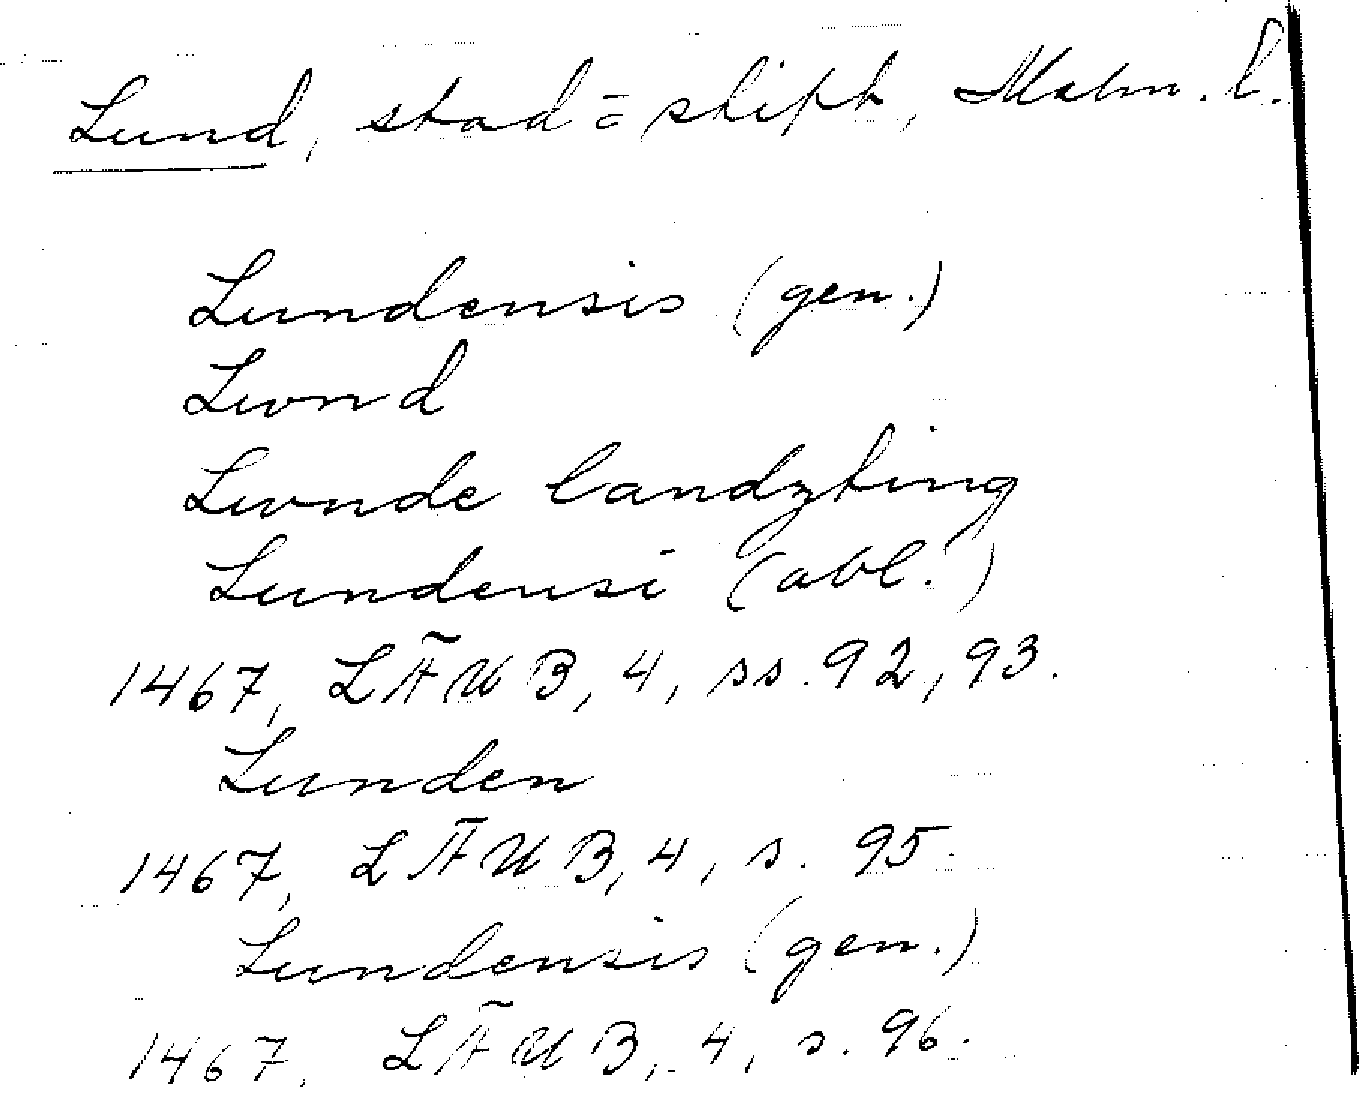 Lund, stad = stift, Malm. l.
Lundensis (gen.)
Lvnd
Lvnde landzting
Lundensi (abl.)
1467, LÄUB, 4, ss. 92, 93.
Lunden
1467, LÄUB, 4, s. 95.
Lundensis (gen.)
1467, LÄUB, 4, s. 96.